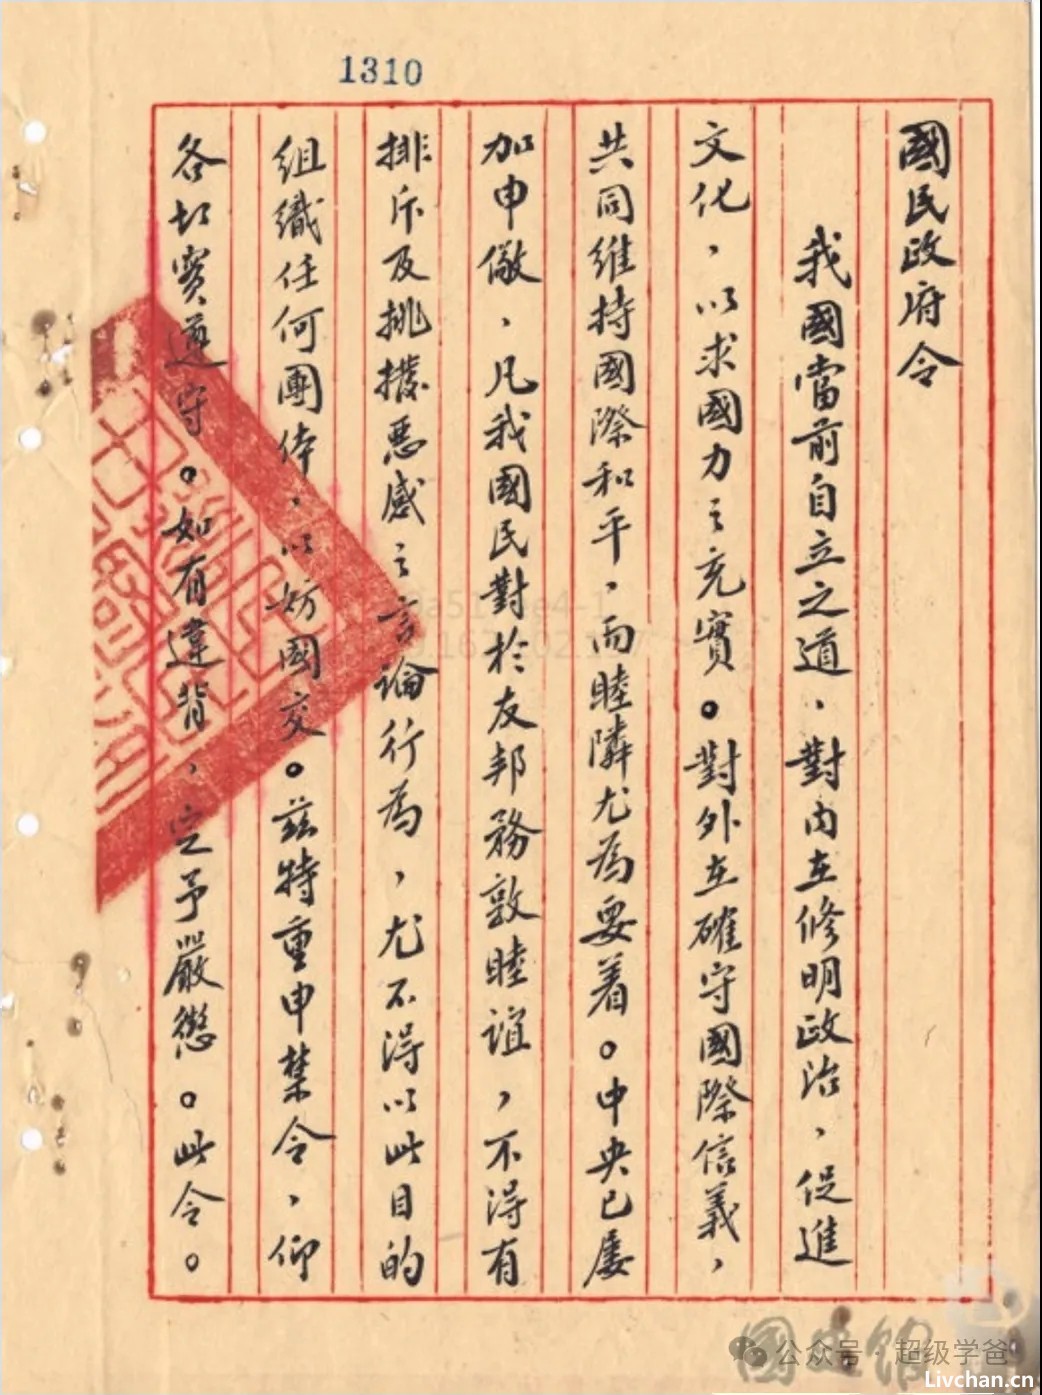 1310
國民政府令
我國當前自立之道、對內在修明政治，促進
文化，以求國力之充實。對外在確守國際信義，
共同維持國際和平，而睦隣尤為要着。中央已屢
加申儆、凡我國民對於友邦務敦睦誼，不得有
排斥及挑撥惡感之言論行為，尤不得以此目的
組織任何團体、以妨國交。茲特重申禁令，仰
各切實遵守。如有違背、定予嚴懲。此令。
國史館
公众号·超级学爸
Livchan.cn